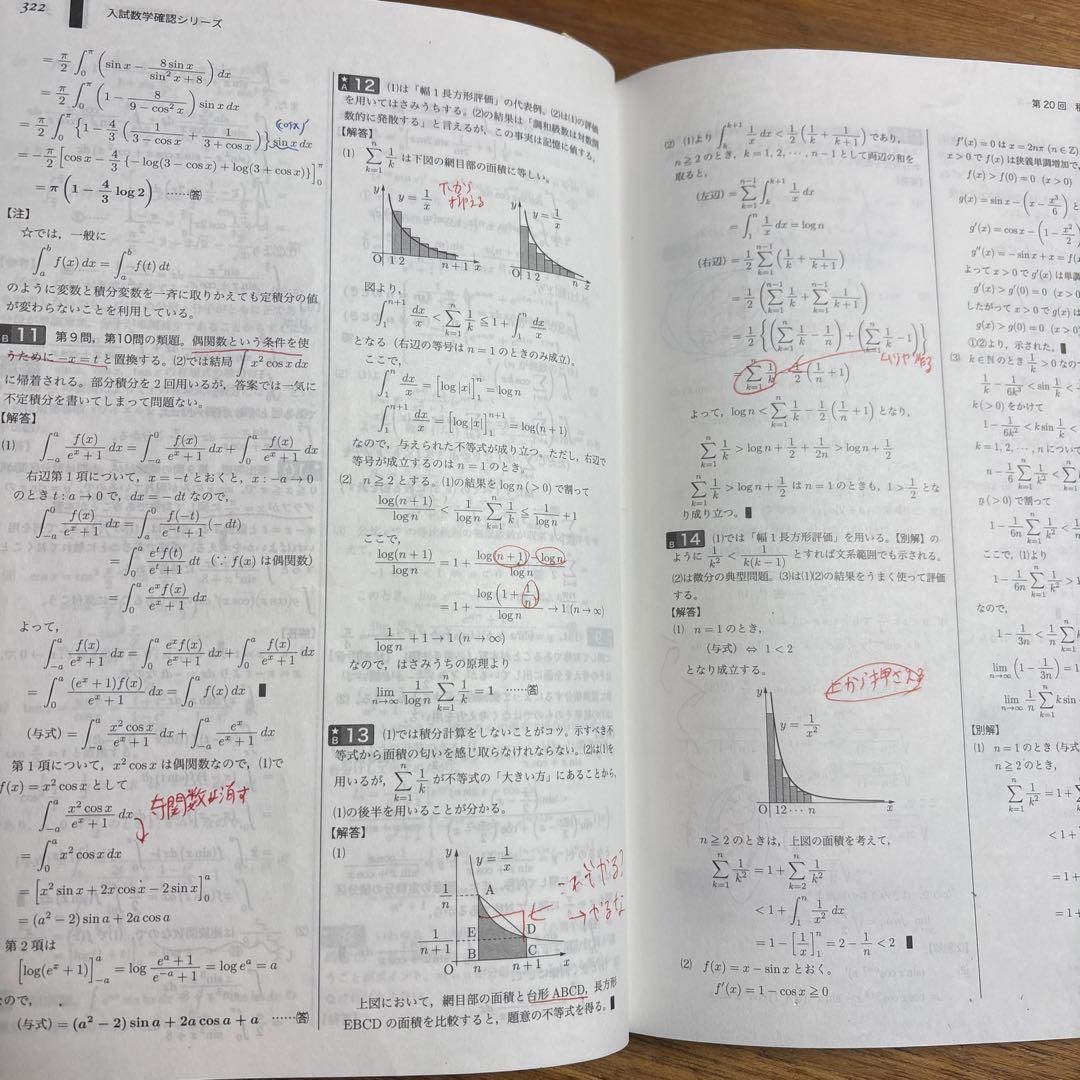 322
入試数学確認シリーズ
= π/2 ∫_0^π (sin x − 8 sin x/(sin² x + 8)) dx
= π/2 ∫_0^π (1 − 8/(9 − cos² x)) sin x dx
= π/2 ∫_0^π {1 − 4/3 (1/(3 − cos x) + 1/(3 + cos x))} sin x dx
(cosx)'
= −π/2 [cos x − 4/3 {−log(3 − cos x) + log(3 + cos x)}]_0^π
= π(1 − 4/3 log 2) ……答
【注】
☆では，一般に
∫_a^b f(x) dx = ∫_a^b f(t) dt
のように変数と積分変数を一斉に取りかえても定積分の値
が変わらないことを利用している。
B 11 第9問，第10問の類題。偶関数という条件を使
うために −x = t と置換する。(2)では結局 ∫ x² cos x dx
に帰着される。部分積分を2回用いるが，答案では一気に
不定積分を書いてしまって問題ない。
【解答】
(1) ∫_{−a}^a f(x)/(e^x + 1) dx = ∫_{−a}^0 f(x)/(e^x + 1) dx + ∫_0^a f(x)/(e^x + 1) dx
右辺第1項について，x = −t とおくと，x : −a → 0
のとき t : a → 0 で，dx = −dt なので，
∫_{−a}^0 f(x)/(e^x + 1) dx = ∫_a^0 f(−t)/(e^{−t} + 1) (−dt)
= ∫_0^a e^t f(t)/(e^t + 1) dt (∵ f(x) は偶関数)
= ∫_0^a e^x f(x)/(e^x + 1) dx
よって，
∫_{−a}^a f(x)/(e^x + 1) dx = ∫_0^a e^x f(x)/(e^x + 1) dx + ∫_0^a f(x)/(e^x + 1) dx
= ∫_0^a (e^x + 1)f(x)/(e^x + 1) dx = ∫_0^a f(x) dx ▮
(与式) = ∫_{−a}^a x² cos x/(e^x + 1) dx + ∫_{−a}^a e^x/(e^x + 1) dx
第1項について，x² cos x は偶関数なので，(1)で
f(x) = x² cos x として
∫_{−a}^a x² cos x/(e^x + 1) dx
奇関数は消す
= ∫_0^a x² cos x dx
= [x² sin x + 2x cos x − 2 sin x]_0^a
= (a² − 2) sin a + 2a cos a
第2項は
[log(e^x + 1)]_{−a}^a = log (e^a + 1)/(e^{−a} + 1) = log e^a = a
なので，
(与式) = (a² − 2) sin a + 2a cos a + a ……答
★A 12 (1)は「幅1長方形評価」の代表例。(2)は(1)の評価
を用いてはさみうちする。(2)の結果は「調和級数は対数関
数的に発散する」と言えるが，この事実は記憶に値する。
【解答】
(1) Σ_{k=1}^n 1/k は下図の網目部の面積に等しい。
y y = 1/x O 1 2 n + 1 x
下から
抑える
y y = 1/x O 1 2 n x
図より，
∫_1^{n+1} dx/x < Σ_{k=1}^n 1/k ≦ 1 + ∫_1^n dx/x
となる (右辺の等号は n = 1 のときのみ成立)。
ここで，
∫_1^n dx/x = [log |x|]_1^n = log n
∫_1^{n+1} dx/x = [log |x|]_1^{n+1} = log(n + 1)
なので，与えられた不等式が成り立つ。ただし，右辺で
等号が成立するのは n = 1 のとき。
(2) n ≧ 2 とする。(1)の結果を log n (> 0) で割って
log(n + 1)/log n < 1/log n Σ_{k=1}^n 1/k ≦ 1/log n + 1
ここで，
log(n + 1)/log n = 1 + (log(n + 1) − log n)/log n
= 1 + log(1 + 1/n)/log n → 1 (n → ∞)
1/log n + 1 → 1 (n → ∞)
なので，はさみうちの原理より
lim_{n→∞} 1/log n Σ_{k=1}^n 1/k = 1 ……答
★B 13 (1)では積分計算をしないことがコツ。示すべき不
等式から面積の匂いを感じ取らなければならない。(2)は(1)を
用いるが，Σ_{k=1}^n 1/k が不等式の「大きい方」にあることから，
(1)の後半を用いることが分かる。
【解答】
(1)
y y = 1/x 1/n A E D 1/(n + 1) B C O n n+1 x
上図において，網目部の面積と台形 ABCD，長方形
EBCD の面積を比較すると，題意の不等式を得る。▮
第20回
(2) (1)より ∫_k^{k+1} 1/x dx < 1/2 (1/k + 1/(k + 1)) であり，
n ≧ 2 のとき，k = 1, 2, ⋯, n − 1 として両辺の和を
取ると，
(左辺) = Σ_{k=1}^{n−1} ∫_k^{k+1} 1/x dx
= ∫_1^n 1/x dx = log n
(右辺) = 1/2 Σ_{k=1}^{n−1} (1/k + 1/(k+1))
= 1/2 (Σ_{k=1}^{n−1} 1/k + Σ_{k=1}^{n−1} 1/(k+1))
= 1/2 {(Σ_{k=1}^n 1/k − 1/n) + (Σ_{k=1}^n 1/k − 1)}
= Σ_{k=1}^n 1/k − 1/2 (1/n + 1)
よって，log n < Σ_{k=1}^n 1/k − 1/2 (1/n + 1) となり，
Σ_{k=1}^n 1/k > log n + 1/2 + 1/2n > log n + 1/2
Σ_{k=1}^n 1/k > log n + 1/2 は n = 1 のときも，1 > 1/2 とな
り成り立つ。▮
B 14 (1)では「幅1長方形評価」を用いる。【別解】の
ように 1/k² < 1/(k(k − 1)) とすれば文系範囲でも示される。
(2)は微分の典型問題。(3)は(1)(2)の結果をうまく使って評価
する。
【解答】
(1) n = 1 のとき，
(与式) ⇔ 1 < 2
となり成立する。
上から押さえる
y y = 1/x² O 12⋯ n x
n ≧ 2 のときは，上図の面積を考えて，
Σ_{k=1}^n 1/k² = 1 + Σ_{k=2}^n 1/k²
< 1 + ∫_1^n 1/x² dx
= 1 − [1/x]_1^n = 2 − 1/n < 2 ▮
(2) f(x) = x − sin x とおく。
f′(x) = 1 − cos x ≧ 0
f′(x) = 0 は x = 2nπ (n ∈ Z)
x > 0 で f(x) は狭義単調増加で，
f(x) > f(0) = 0 (x > 0)
g(x) = sin x − (x − x³/6) と
g′(x) = cos x − (1 − x²/2)
g″(x) = − sin x + x = f(
よって x > 0 で g′(x) は単調
g′(x) > g′(0) = 0 (x >
したがって x > 0 で g(x) は
g(x) > g(0) = 0 (x >
①②より，示された。▮
(3) k ∈ N のとき 1/k > 0 なの
1/k − 1/6k³ < sin 1/k <
k (> 0) をかけて
1 − 1/6k² < k sin 1/k <
k = 1, 2, ⋯, n につい
n − 1/6 Σ_{k=1}^n 1/k² < Σ
n (> 0) で割って
1 − 1/6n Σ_{k=1}^n 1/k² <
ここで，(1)より
1 − 1/6n Σ_{k=1}^n 1/k² >
なので，
1 − 1/3n < 1/n Σ_{k=1}^n k
lim_{n→∞} (1 − 1/3n) = 1
lim_{n→∞} 1/n Σ_{k=1}^n k sin
【別解】
(1) n = 1 のとき (与式
n ≧ 2 のとき，
Σ_{k=1}^n 1/k² = 1 + Σ
< 1 +
= 1 +
= 1 +